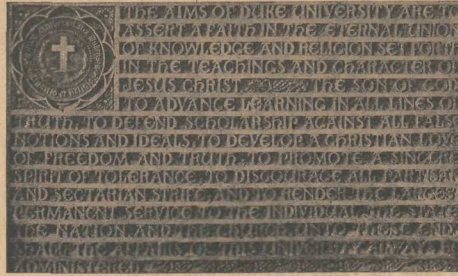 THE AIMS OF DUKE UNIVERSITY ARE TO
ASSERT A FAITH IN THE ETERNAL UNION
OF KNOWLEDGE AND RELIGION SET FORTH
IN THE TEACHINGS AND CHARACTER OF
JESUS CHRIST THE SON OF GOD
TO ADVANCE LEARNING IN ALL LINES OF
TRUTH, TO DEFEND SCHOLARSHIP AGAINST ALL FALSE
NOTIONS AND IDEALS, TO DEVELOP A CHRISTIAN LOVE
OF FREEDOM AND TRUTH, TO PROMOTE A SINCERE
SPIRIT OF TOLERANCE, TO DISCOURAGE ALL PARTISAN
AND SECTARIAN STRIFE, AND TO RENDER THE LARGEST
PERMANENT SERVICE TO THE INDIVIDUAL, THE STATE,
THE NATION, AND THE CHURCH. UNTO THESE ENDS
SHALL THE AFFAIRS OF THIS UNIVERSITY ALWAYS BE
ADMINISTERED